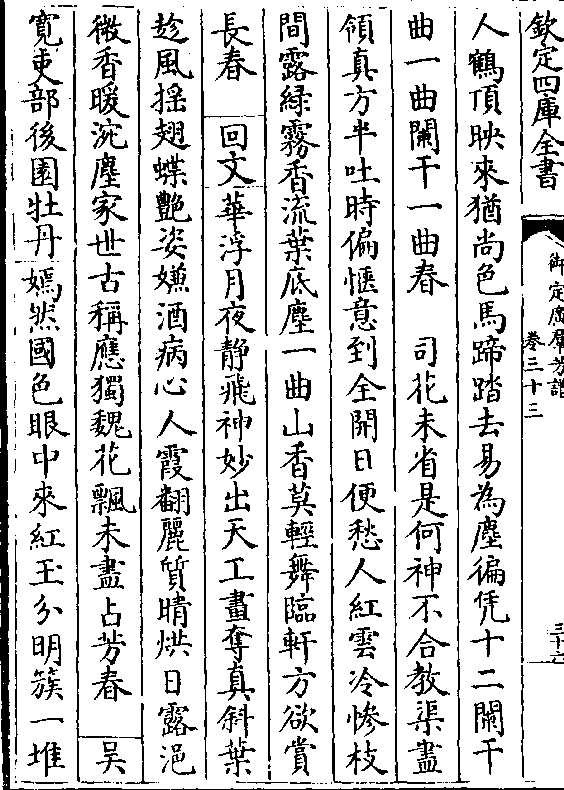 欽定四庫全書
御定廣羣芳譜
卷三十三
三十六
人鶴頂映來猶尚色馬蹄踏去易為塵徧凭十二闌干
曲一曲闌干一曲春　司花未省是何神不合教渠盡
領真方半吐時偏愜意到全開日便愁人紅雲冷慘枝
間露綠霧香流葉底塵一曲山香莫輕舞臨軒方欲賞
長春　回文華浮月夜静飛神妙出天工畫奪真斜葉
趁風揺翅蝶艷姿嫌酒病心人霞翻麗質晴烘日露浥
微香暖涴塵家世古稱應獨魏花飄未盡占芳春　吴
寛吏部後園牡丹嫣然國色眼中來紅玉分明簇一堆